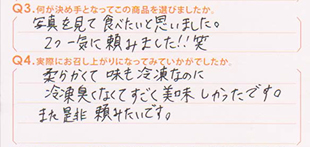 Q3.何が決め手となってこの商品を選びましたか。
写真を見て食べたいと思いました。
2つ一気に頼みました!!笑
Q4.実際にお召し上がりになってみていかがでしたか。
柔らかくて味も冷凍なのに
冷凍臭くなくてすごく美味しかったです。
また是非頼みたいです。